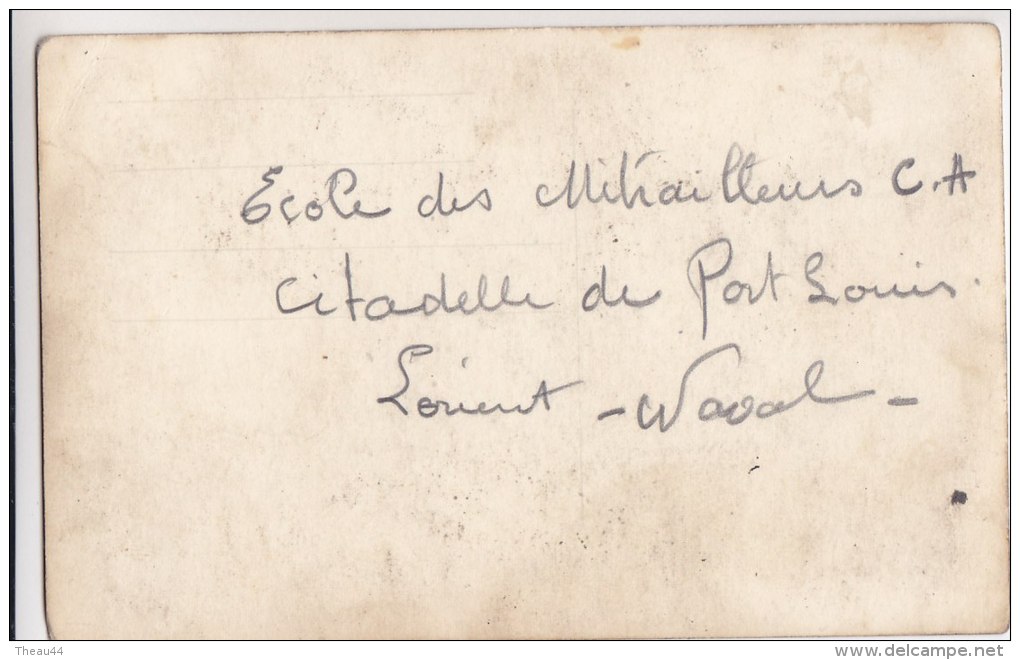 Ecole des Mitrailleurs C.A
Citadelle de Port Louis.
Lorient - Naval -
Theau44
www.delcampe.net